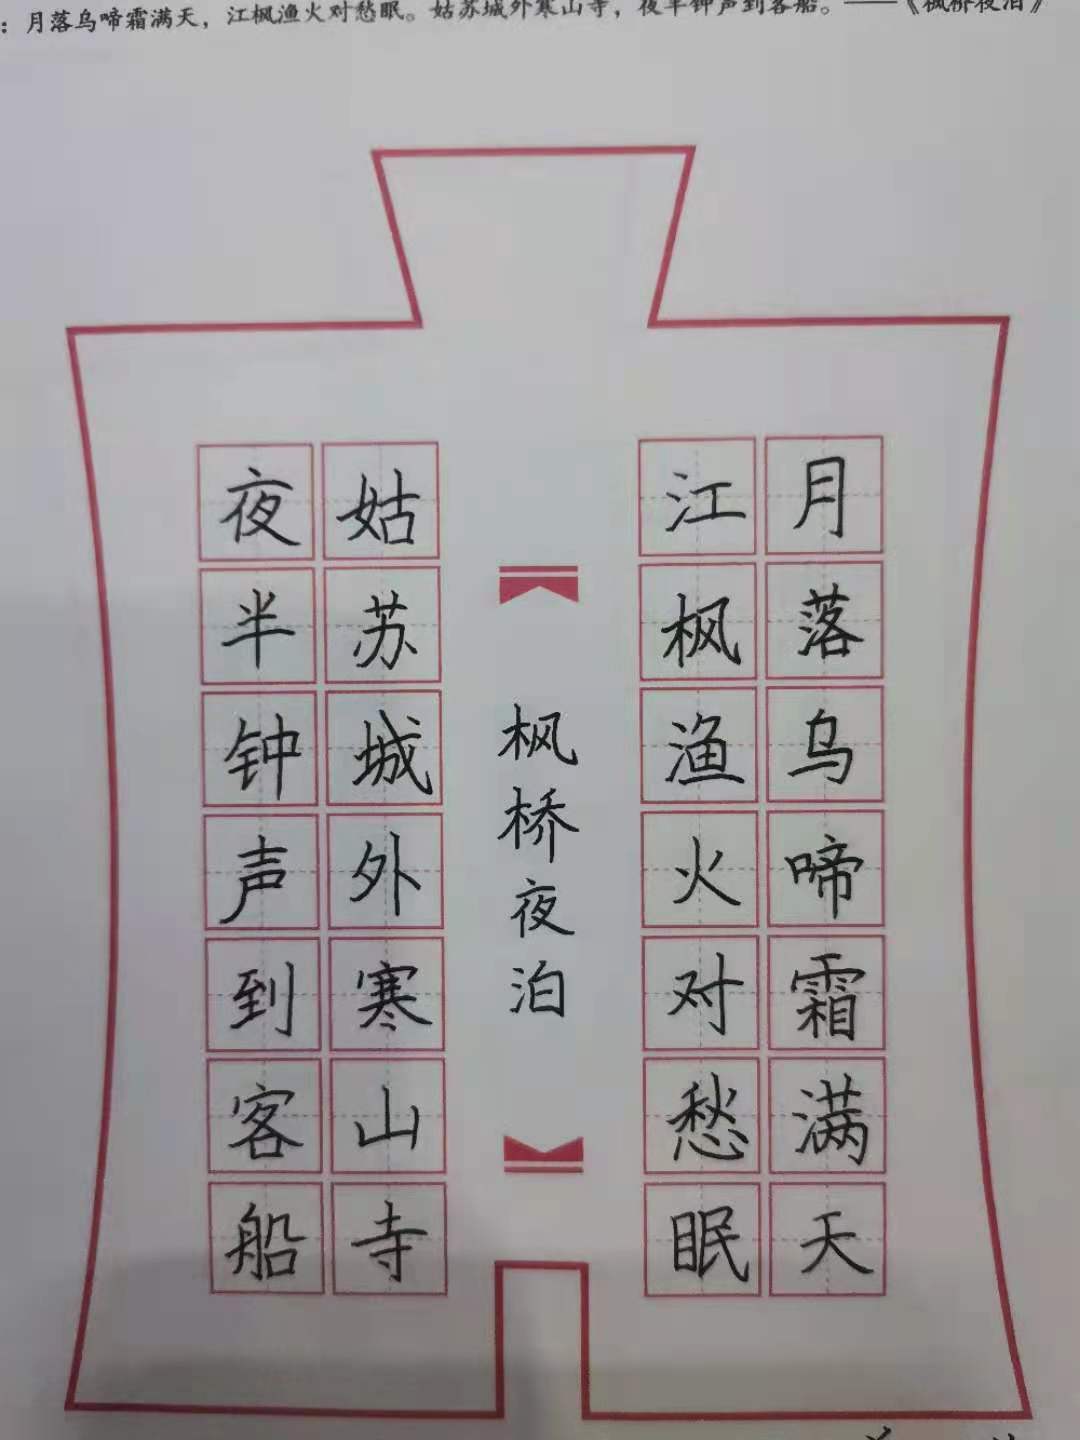 ：月落乌啼霜满天，江枫渔火对愁眠。姑苏城外寒山寺，夜半钟声到客船。——《枫桥夜泊》
月落乌啼霜满天
江枫渔火对愁眠
枫桥夜泊
姑苏城外寒山寺
夜半钟声到客船